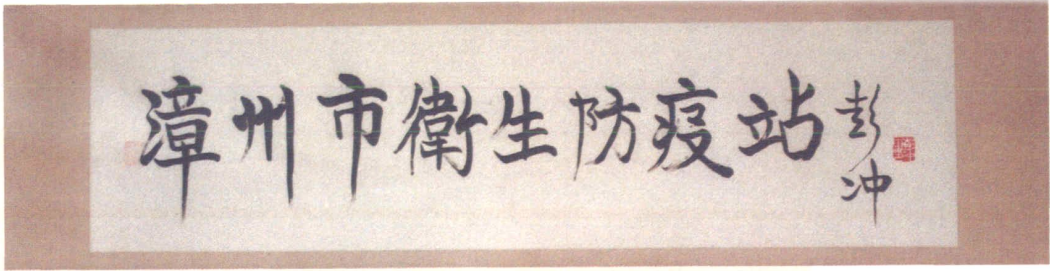 漳州市衛生防疫站
彭冲